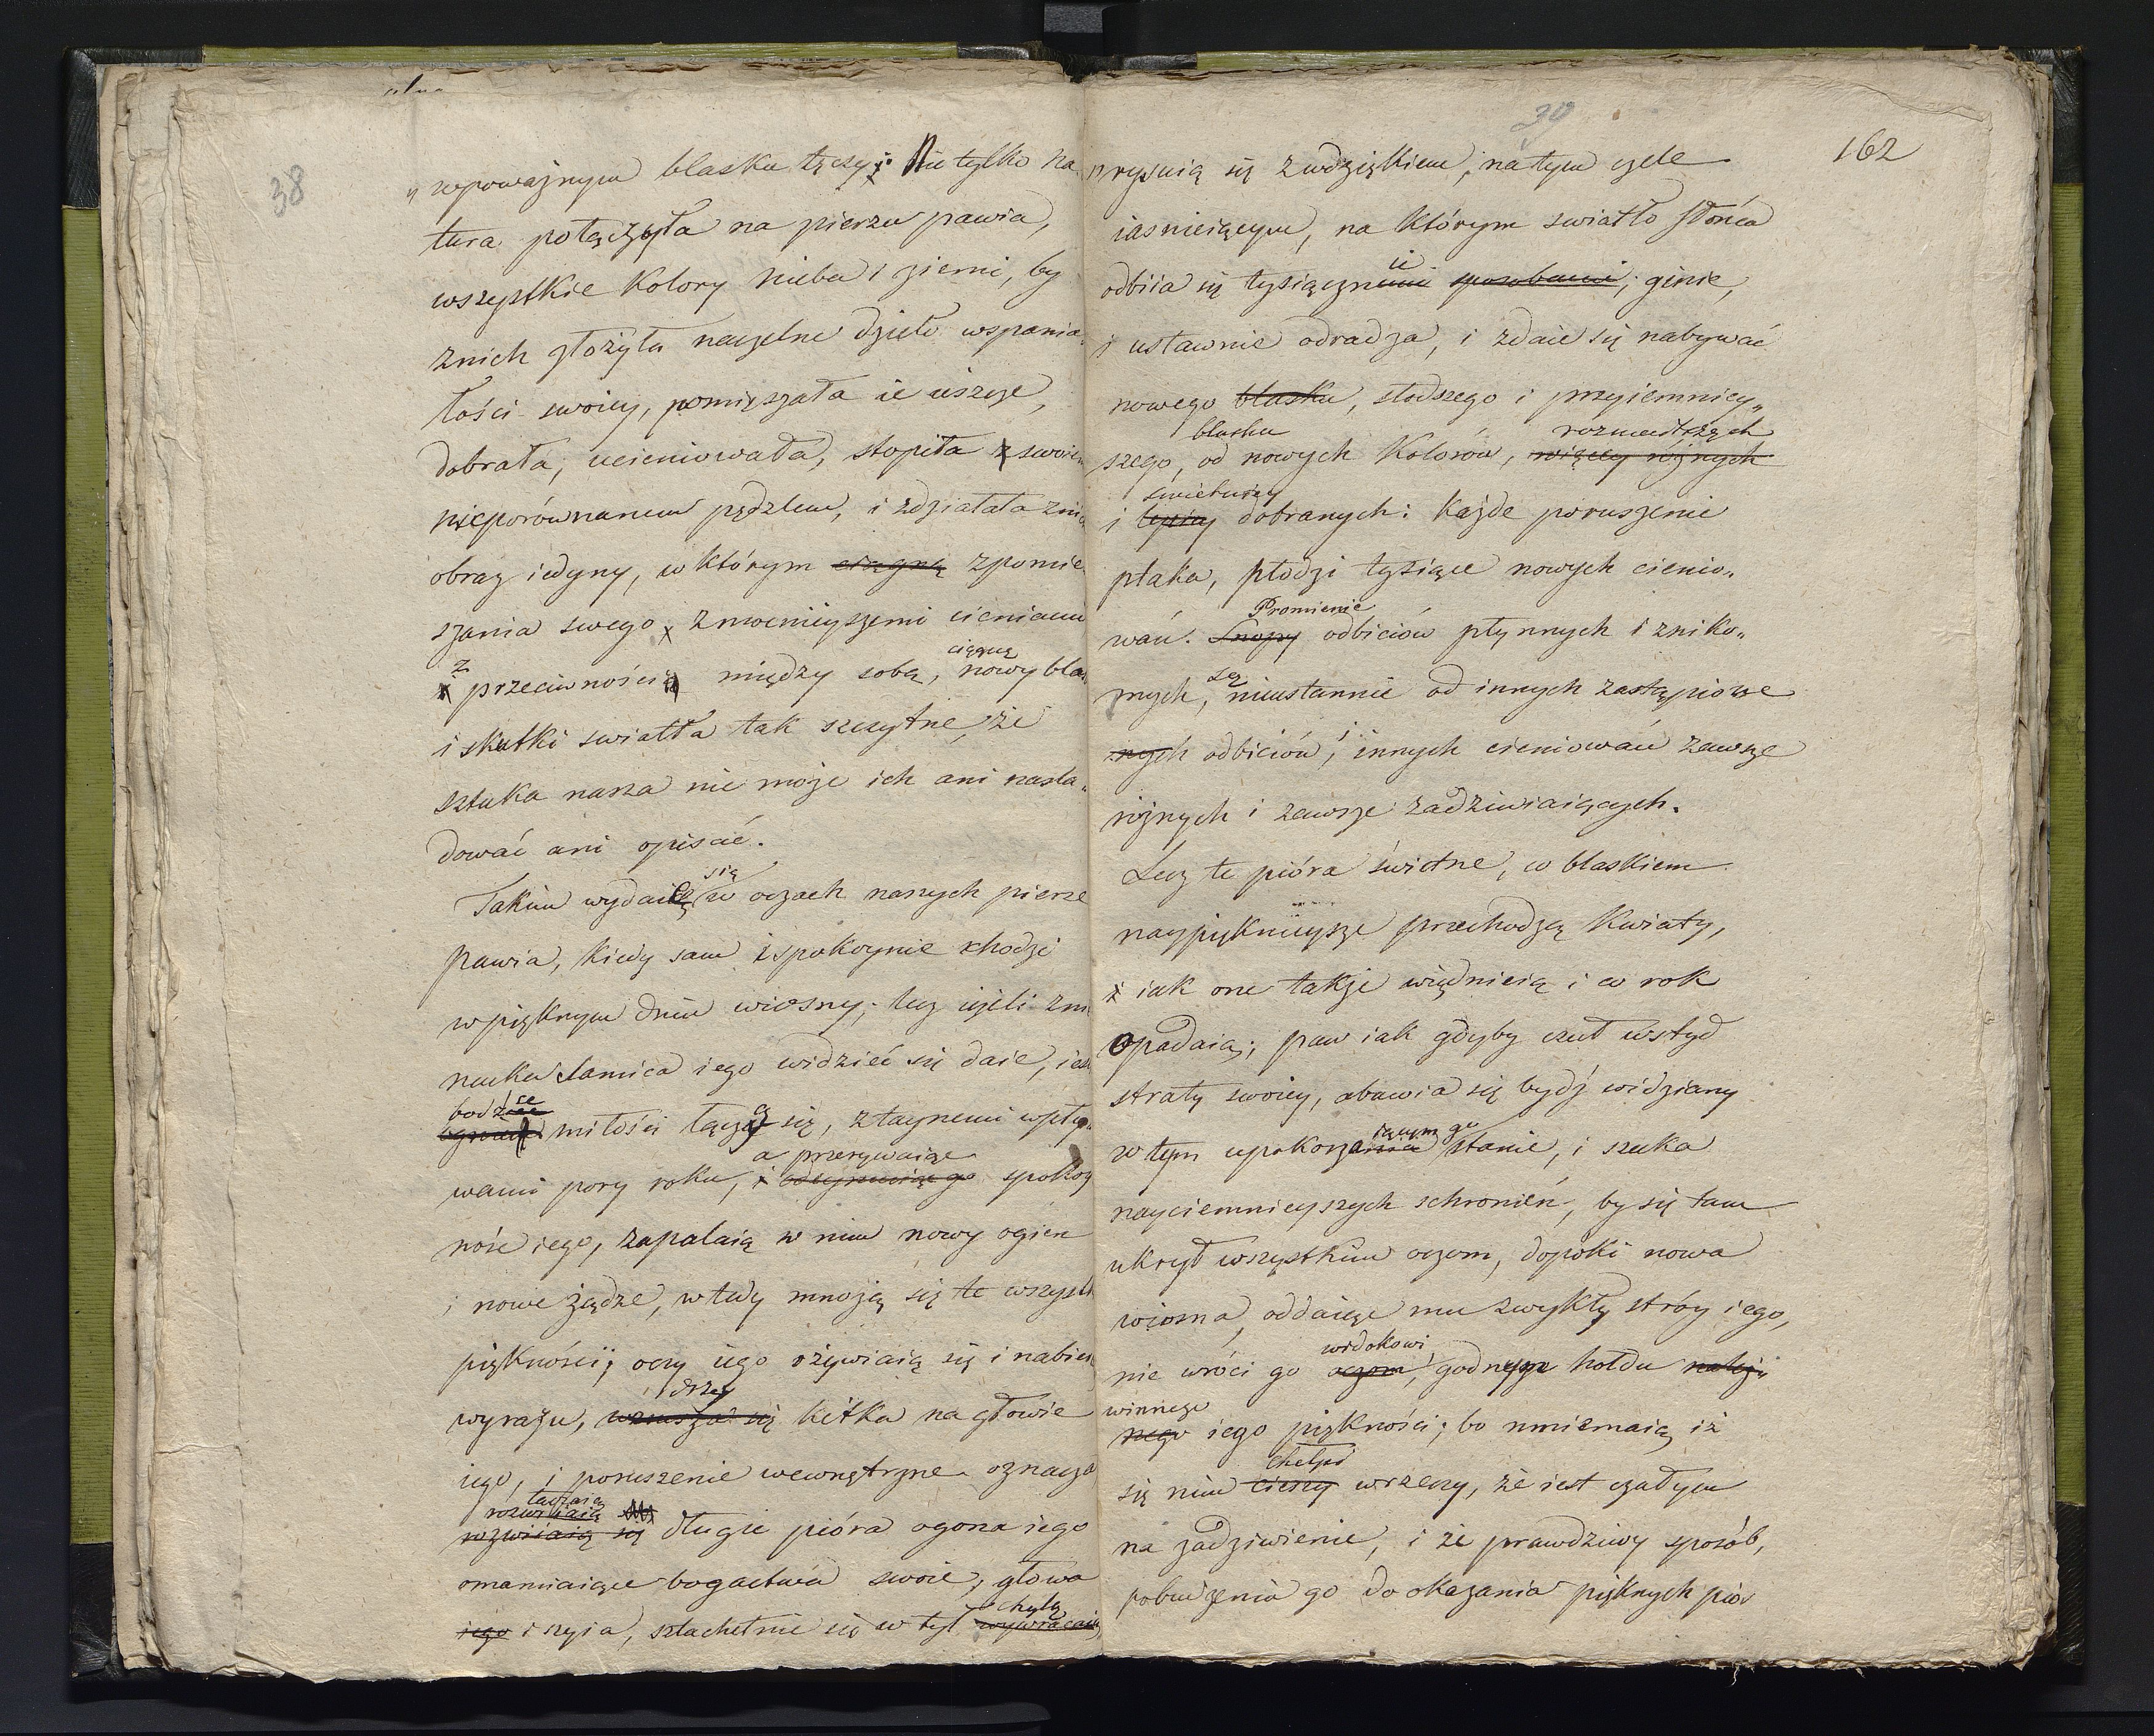 38
„ wpoważnym blasku tęczy: Nie tylko na
tura połączyła na pierzu pawia,
wszystkie kolory nieba i ziemi, by
znich złożyła naczelne dzieło wspania„
łości swoiey, pomięszała ie ieszcze,
dobrała, ucieniowała, stopiła z swoim
nieporównanem pędzlem, i zdziałała znich
obraz iedyny, w którym ciągną zpomie„
szania swego z mocnieyszemi cieniami
z
i przeciwnością między sobą, nowy bla
ciągną
i skutki swiatła tak szczytne, że
sztuka nasza nie może ich ani nasla„
dować ani opisać.
Takim wydaie się w oczach naszych pierze
pawia, kiedy sam i spokoynie chodzi
w pięknym dniu wiosny; lecz ieżeli zni
nacka samica iego widzieć się daie, ies
bodzce
miłości łączą się, z taynemi wpły„
a przerywaiąc
wami pory roku, i spokoy
ność iego, zapalaią w nim nowy ogien
i nowe żądze, wtedy mnożą się te wszystk
piękności; oczy iego ożywiaią się i nabier
drży
wyrazu, wzrusza się kitka na głowie
iego, i poruszenie wewnętrzne oznacza
rozwiiaią
rozwiiaią się długie pióra ogona iego
omamiaiące bogactwa swoie, głowa
chylą
iego i szyia, szlachetnie się w tył wywracaią,
39
162
„ rysuią się z wdziękiem, na tym czele
iasnieiącym, na którym swiatło słońca
ie
odbiia się tysiącznemi sposobami; ginie,
i ustawnie odradza, i zdaie się nabywać
nowego blasku, słodszego i przyiemniey„
blasku rozmaitszych
szego, od nowych kolorów, więcey różnych
swietniey
i lepiey dobranych: każde poruszenie
ptaka, płodzi tysiące nowych cienio„
Promienie
wań. Snopy odbiciów płynnych i zniko„
są
mych, nieustannie od innych zastąpione
nych odbiciów, i innych cieniowań zawsze
różnych i zawsze zadziwiaiących.
Lecz te pióra świetne, co blaskiem
naypięknieysze przechodzą kwiaty,
i iak one także więdnieią i co rok
opadaią; paw iak gdyby czuł wstyd
straty swoiey, obawia się bydź widziany
iącym go
w tym upokorzenia stanie, i szuka
nayciemnieyszych schronień, by się tam
ukrył wszystkim oczom, dopoki nowa
wiosna, oddaiąc mu zwykły stróy iego,
widokowi
nie wróci go oczom, godnym hołdu należ
winnego
nego iego piękności; bo mniemaią iż
chełpi
się nim cieszy wrzeczy, że iest czułym
na zadziwienie, i że prawdziwy sposób,
pobudzenia go do okazania pięknych piór